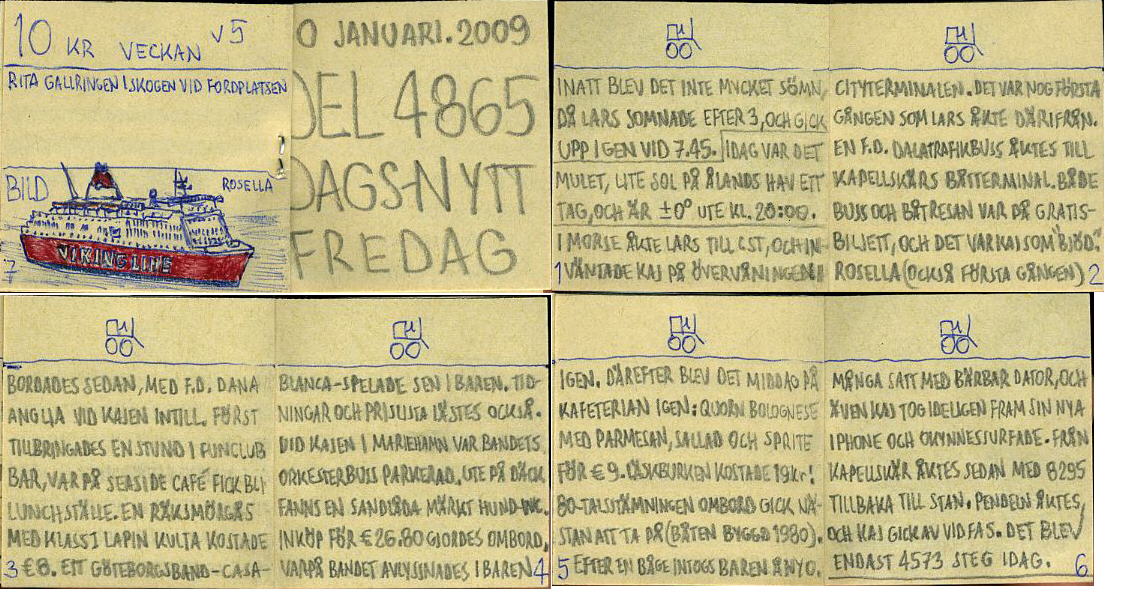 10 KR VECKAN V5
RITA GALLRINGEN I SKOGEN VID FORDPLATSEN
BILD ROSELLA
VIKING LINE
7
0 JANUARI. 2009
DEL 4865
DAGS-NYTT
FREDAG
INATT BLEV DET INTE MYCKET SÖMN,
DÅ LARS SOMNADE EFTER 3, OCH GICK
UPP IGEN VID 7.45. IDAG VAR DET
MULET, LITE SOL PÅ ÅLANDS HAV ETT
TAG, OCH ÄR ±0° UTE KL. 20:00.
I MORSE ÅKTE LARS TILL CST, OCH IN-
1 VÄNTADE KAJ PÅ ÖVERVÅNINGEN I
CITYTERMINALEN. DET VAR NOG FÖRSTA
GÅNGEN SOM LARS ÅKTE DÄRIFRÅN.
EN F.D. DALATRAFIKBUSS ÅKTES TILL
KAPELLSKÄRS BÅTTERMINAL. BÅDE
BUSS OCH BÅTRESAN VAR PÅ GRATIS-
BILJETT, OCH DET VAR KAJ SOM "BJÖD".
ROSELLA (OCKSÅ FÖRSTA GÅNGEN) 2
BORDADES SEDAN, MED F.D. DANA
ANGLIA VID KAJEN INTILL. FÖRST
TILLBRINGADES EN STUND I FUNCLUB
BAR, VARPÅ SEASIDE CAFÉ FICK BLI
LUNCHSTÄLLE. EN RÄKSMÖRGÅS
MED KLASS I LAPIN KULTA KOSTADE
3 €8. ETT GÖTEBORGSBAND-CASA-
BLANCA-SPELADE SEN I BAREN. TID-
NINGAR OCH PRISLISTA LÄSTES OCKSÅ.
VID KAJEN I MARIEHAMN VAR BANDETS
ORKESTERBUSS PARKERAD. UTE PÅ DÄCK
FANNS EN SANDLÅDA MÄRKT HUND-WC.
INKÖP FÖR €26.80 GJORDES OMBORD,
VARPÅ BANDET AVLYSSNADES I BAREN 4
IGEN. DÄREFTER BLEV DET MIDDAG PÅ
KAFETERIAN IGEN: QUORN BOLOGNESE
MED PARMESAN, SALLAD OCH SPRITE
FÖR €9. LÄSKBURKEN KOSTADE 19kr!
80-TALSSTÄMNINGEN OMBORD GICK NÄ-
STAN ATT TA PÅ (BÅTEN BYGGD 1980).
5 EFTER EN BÅGE INTOGS BAREN ÅNYO.
MÅNGA SATT MED BÄRBAR DATOR, OCH
ÄVEN KAJ TOG IDELIGEN FRAM SIN NYA
IPHONE OCH OKYNNESSURFADE. FRÅN
KAPELLSKÄR ÅKTES SEDAN MED 8295
TILLBAKA TILL STAN. PENDELN ÅKTES,
OCH KAJ GICK AV VID FAS. DET BLEV
ENDAST 4573 STEG IDAG. 6